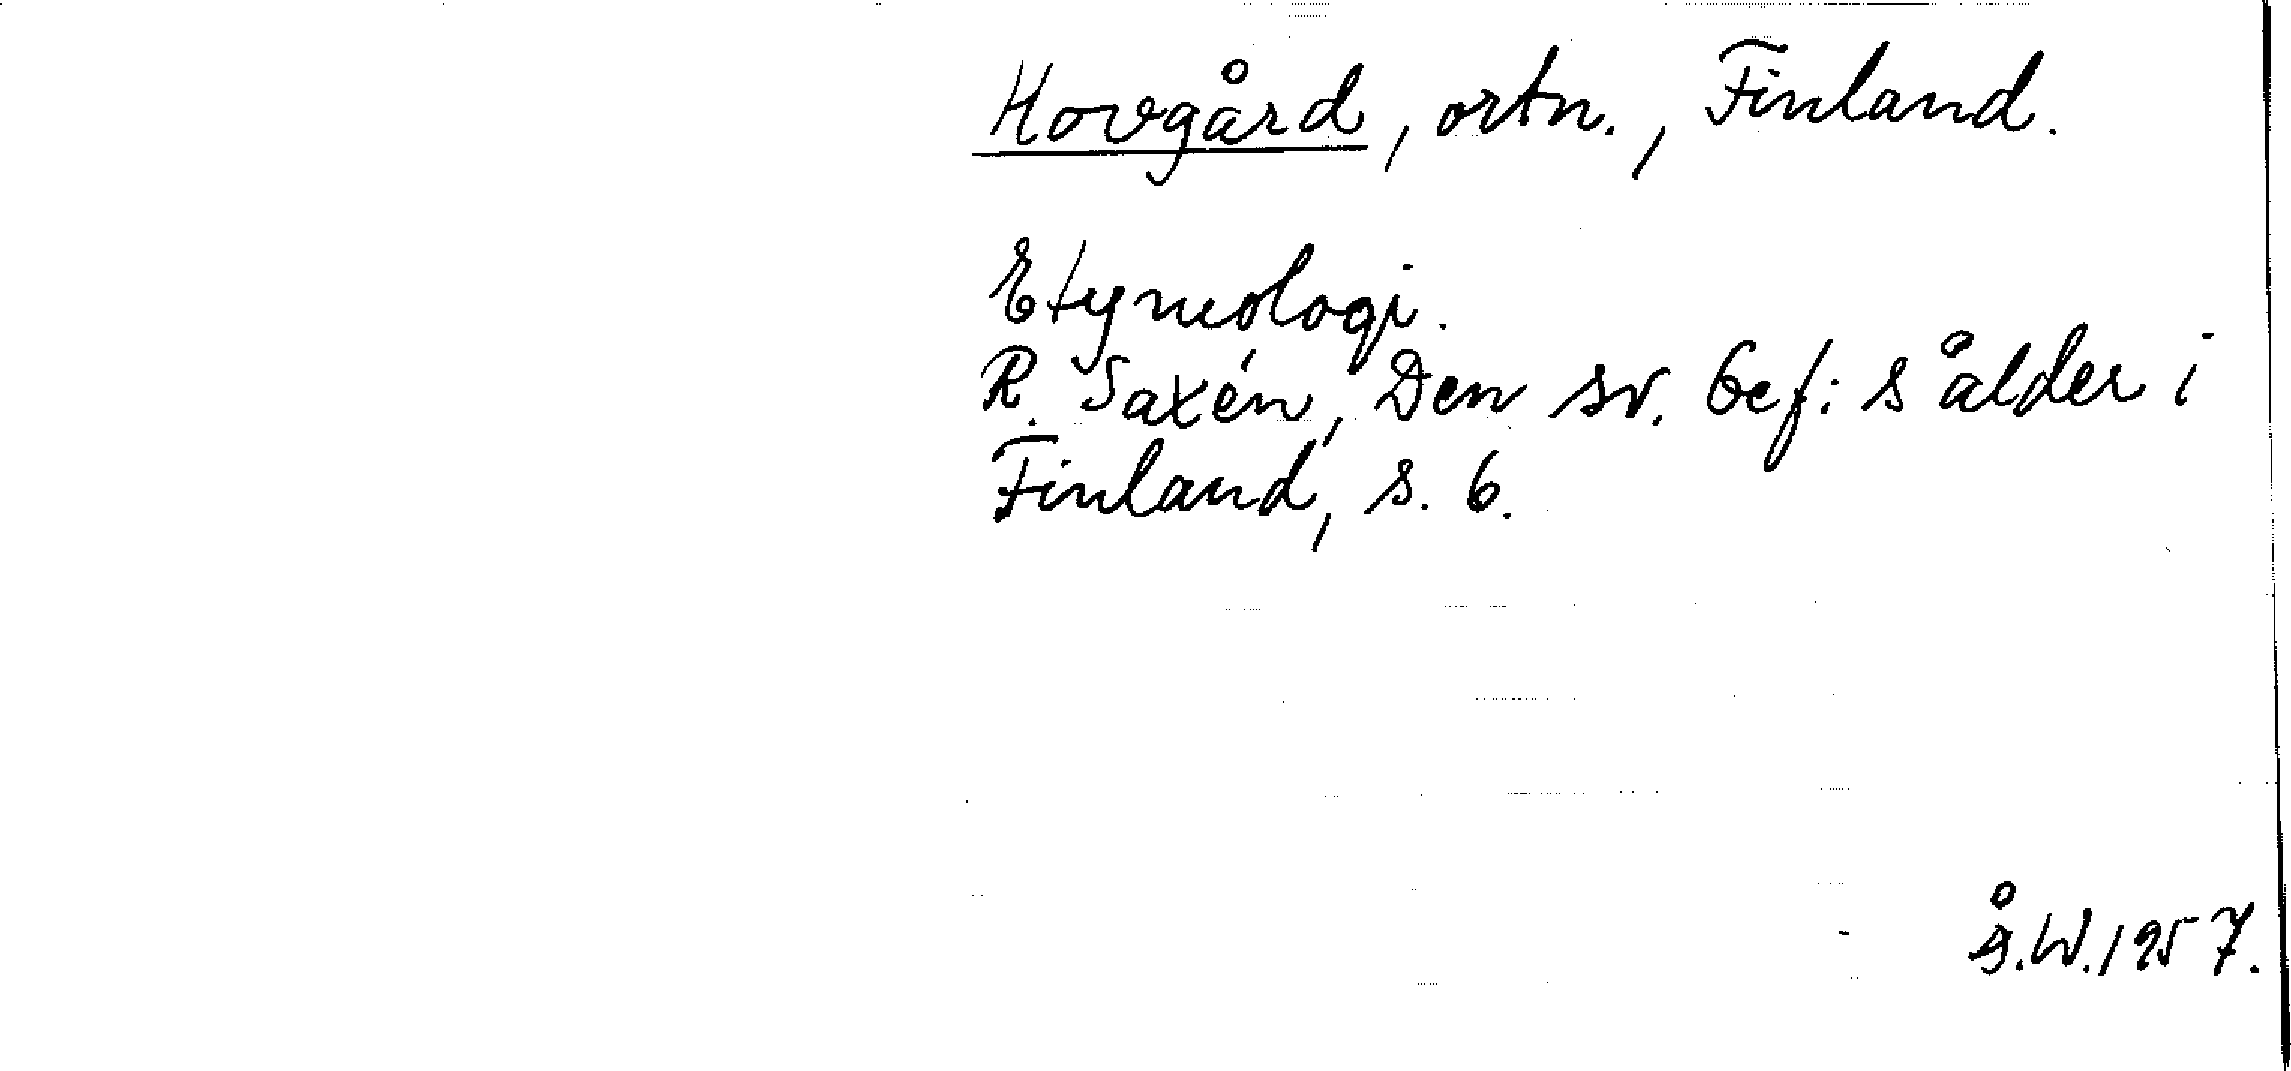 Hovgård, ortn., Finland.
Etymologi.
R. Saxén, Den sv. bef:s ålder i
Finland, s. 6.
Å.W.1957.